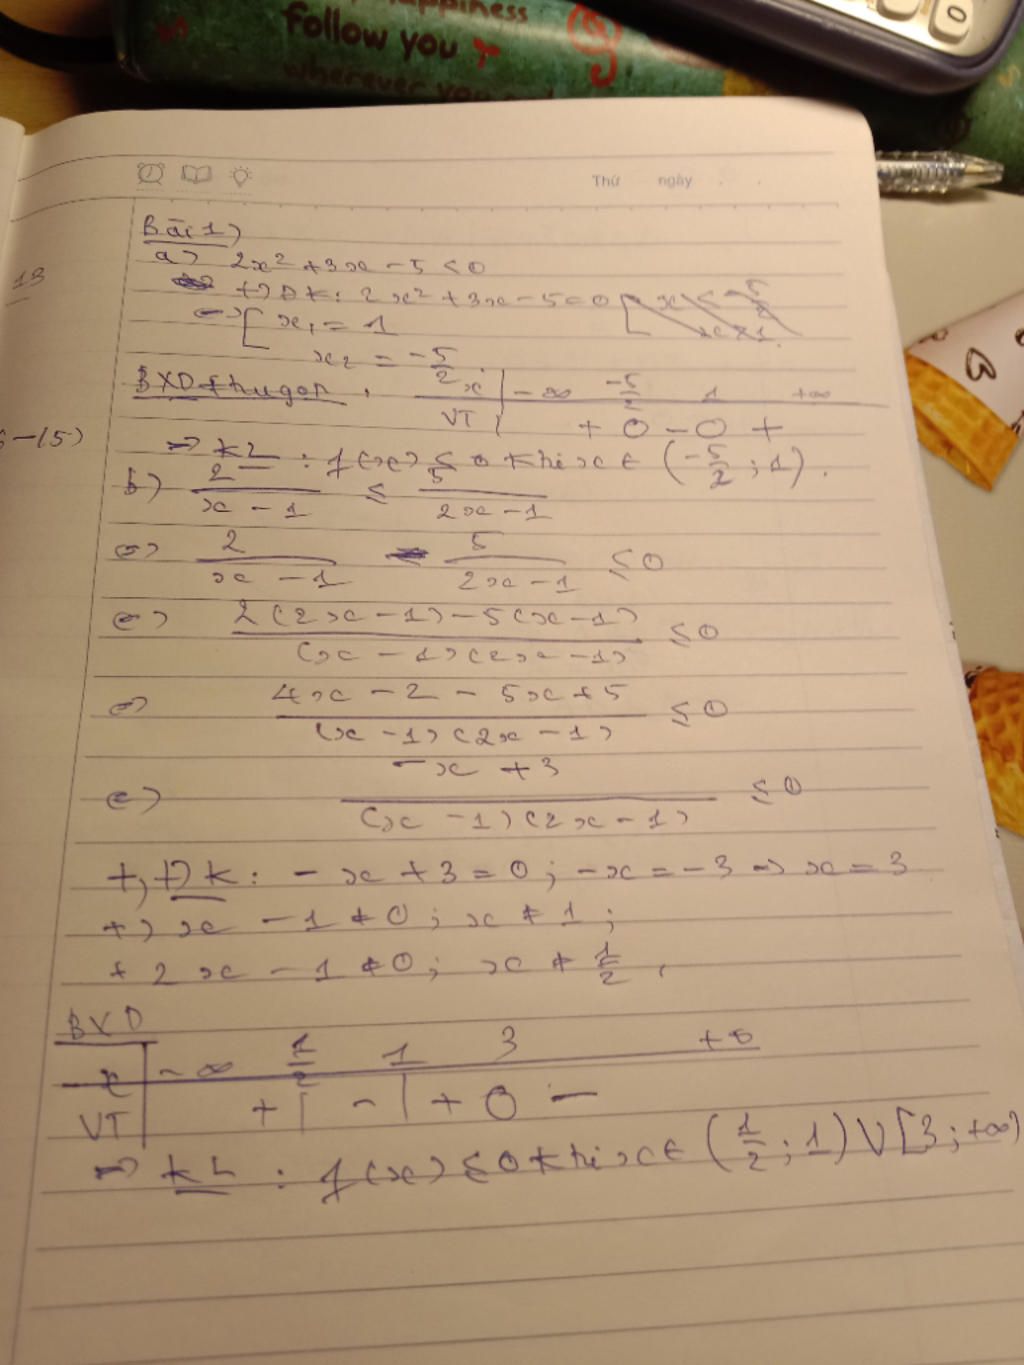 happiness
follow you
wherever you
0
Thứ ngày
13
Bài 1)
a) 2x² + 3x - 5 < 0
+) ĐK: 2x² + 3x - 5 = 0
<=> [ x₁ = 1
x₂ = -5/2
BXD
x | -∞ -5/2 1 +∞
VT | + 0 - 0 +
-(5)
=> KL : f(x) ≤ 0 khi x ∈ (-5/2 ; 1).
b) 2/(x - 1) ≤ 5/(2x - 1)
<=> 2/(x - 1) - 5/(2x - 1) ≤ 0
<=> (2(2x - 1) - 5(x - 1))/((x - 1)(2x - 1)) ≤ 0
<=> (4x - 2 - 5x + 5)/((x - 1)(2x - 1)) ≤ 0
<=> (-x + 3)/((x - 1)(2x - 1)) ≤ 0
+, ĐK: -x + 3 = 0 ; -x = -3 => x = 3
+) x - 1 ≠ 0 ; x ≠ 1 ;
+ 2x - 1 ≠ 0 ; x ≠ 1/2 .
BXD
x | -∞ 1/2 1 3 +∞
VT | + | - | + 0 -
=> KL : f(x) ≤ 0 khi x ∈ (1/2 ; 1) ∪ [3 ; +∞)